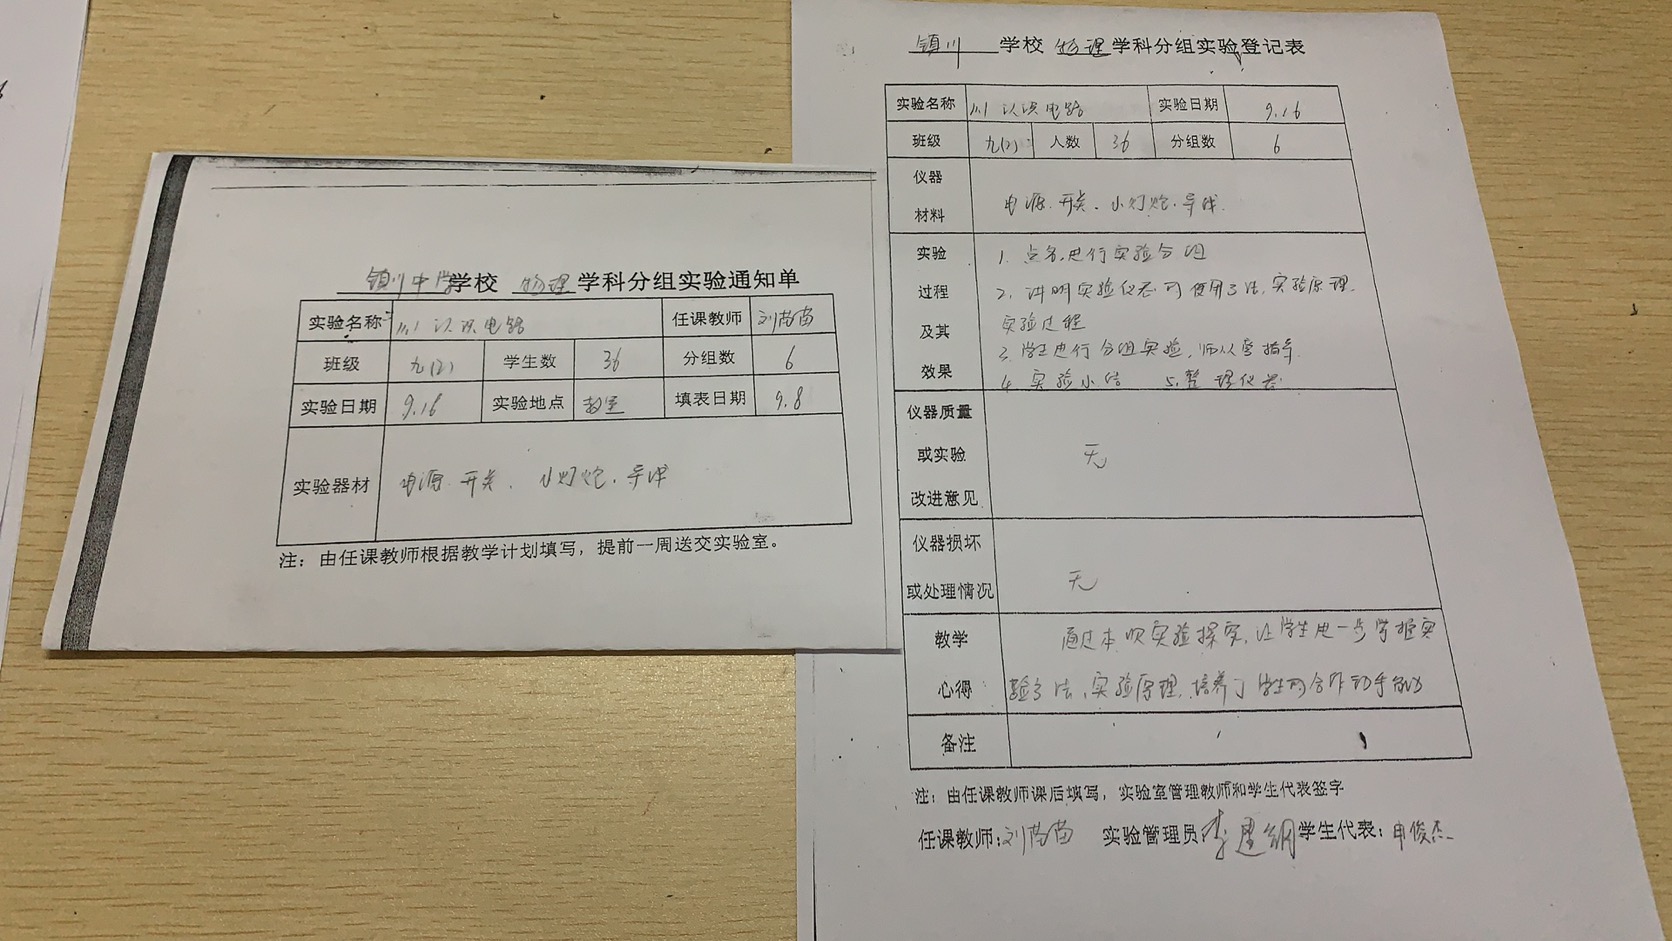 镇川中学学校 物理 学科分组实验通知单
实验名称 11.1 认识电路 任课教师 刘苗苗
班级 九(2) 学生数 36 分组数 6
实验日期 9.16 实验地点 教室 填表日期 9.8
实验器材 电源、开关、小灯炮、导线
注：由任课教师根据教学计划填写，提前一周送交实验室。
镇川 学校 物理 学科分组实验登记表
实验名称 11.1 认识电路 实验日期 9.16
班级 九(2) 人数 36 分组数 6
仪器
材料
电源、开关、小灯炮、导线
实验
过程
及其
效果
1. 点名,进行实验分组
2. 讲明实验仪器的使用方法,实验原理.
实验过程
3. 学生进行分组实验,师从旁指导.
4. 实验小结 5. 整理仪器
仪器质量
或实验
改进意见
无
仪器损坏
或处理情况
无
教学
心得
通过本次实验探究,让学生进一步掌握实
验方法、实验原理,培养了学生的合作动手能力
备注
注：由任课教师课后填写，实验室管理教师和学生代表签字
任课教师: 刘苗苗 实验管理员: 李建纲 学生代表: 申俊杰